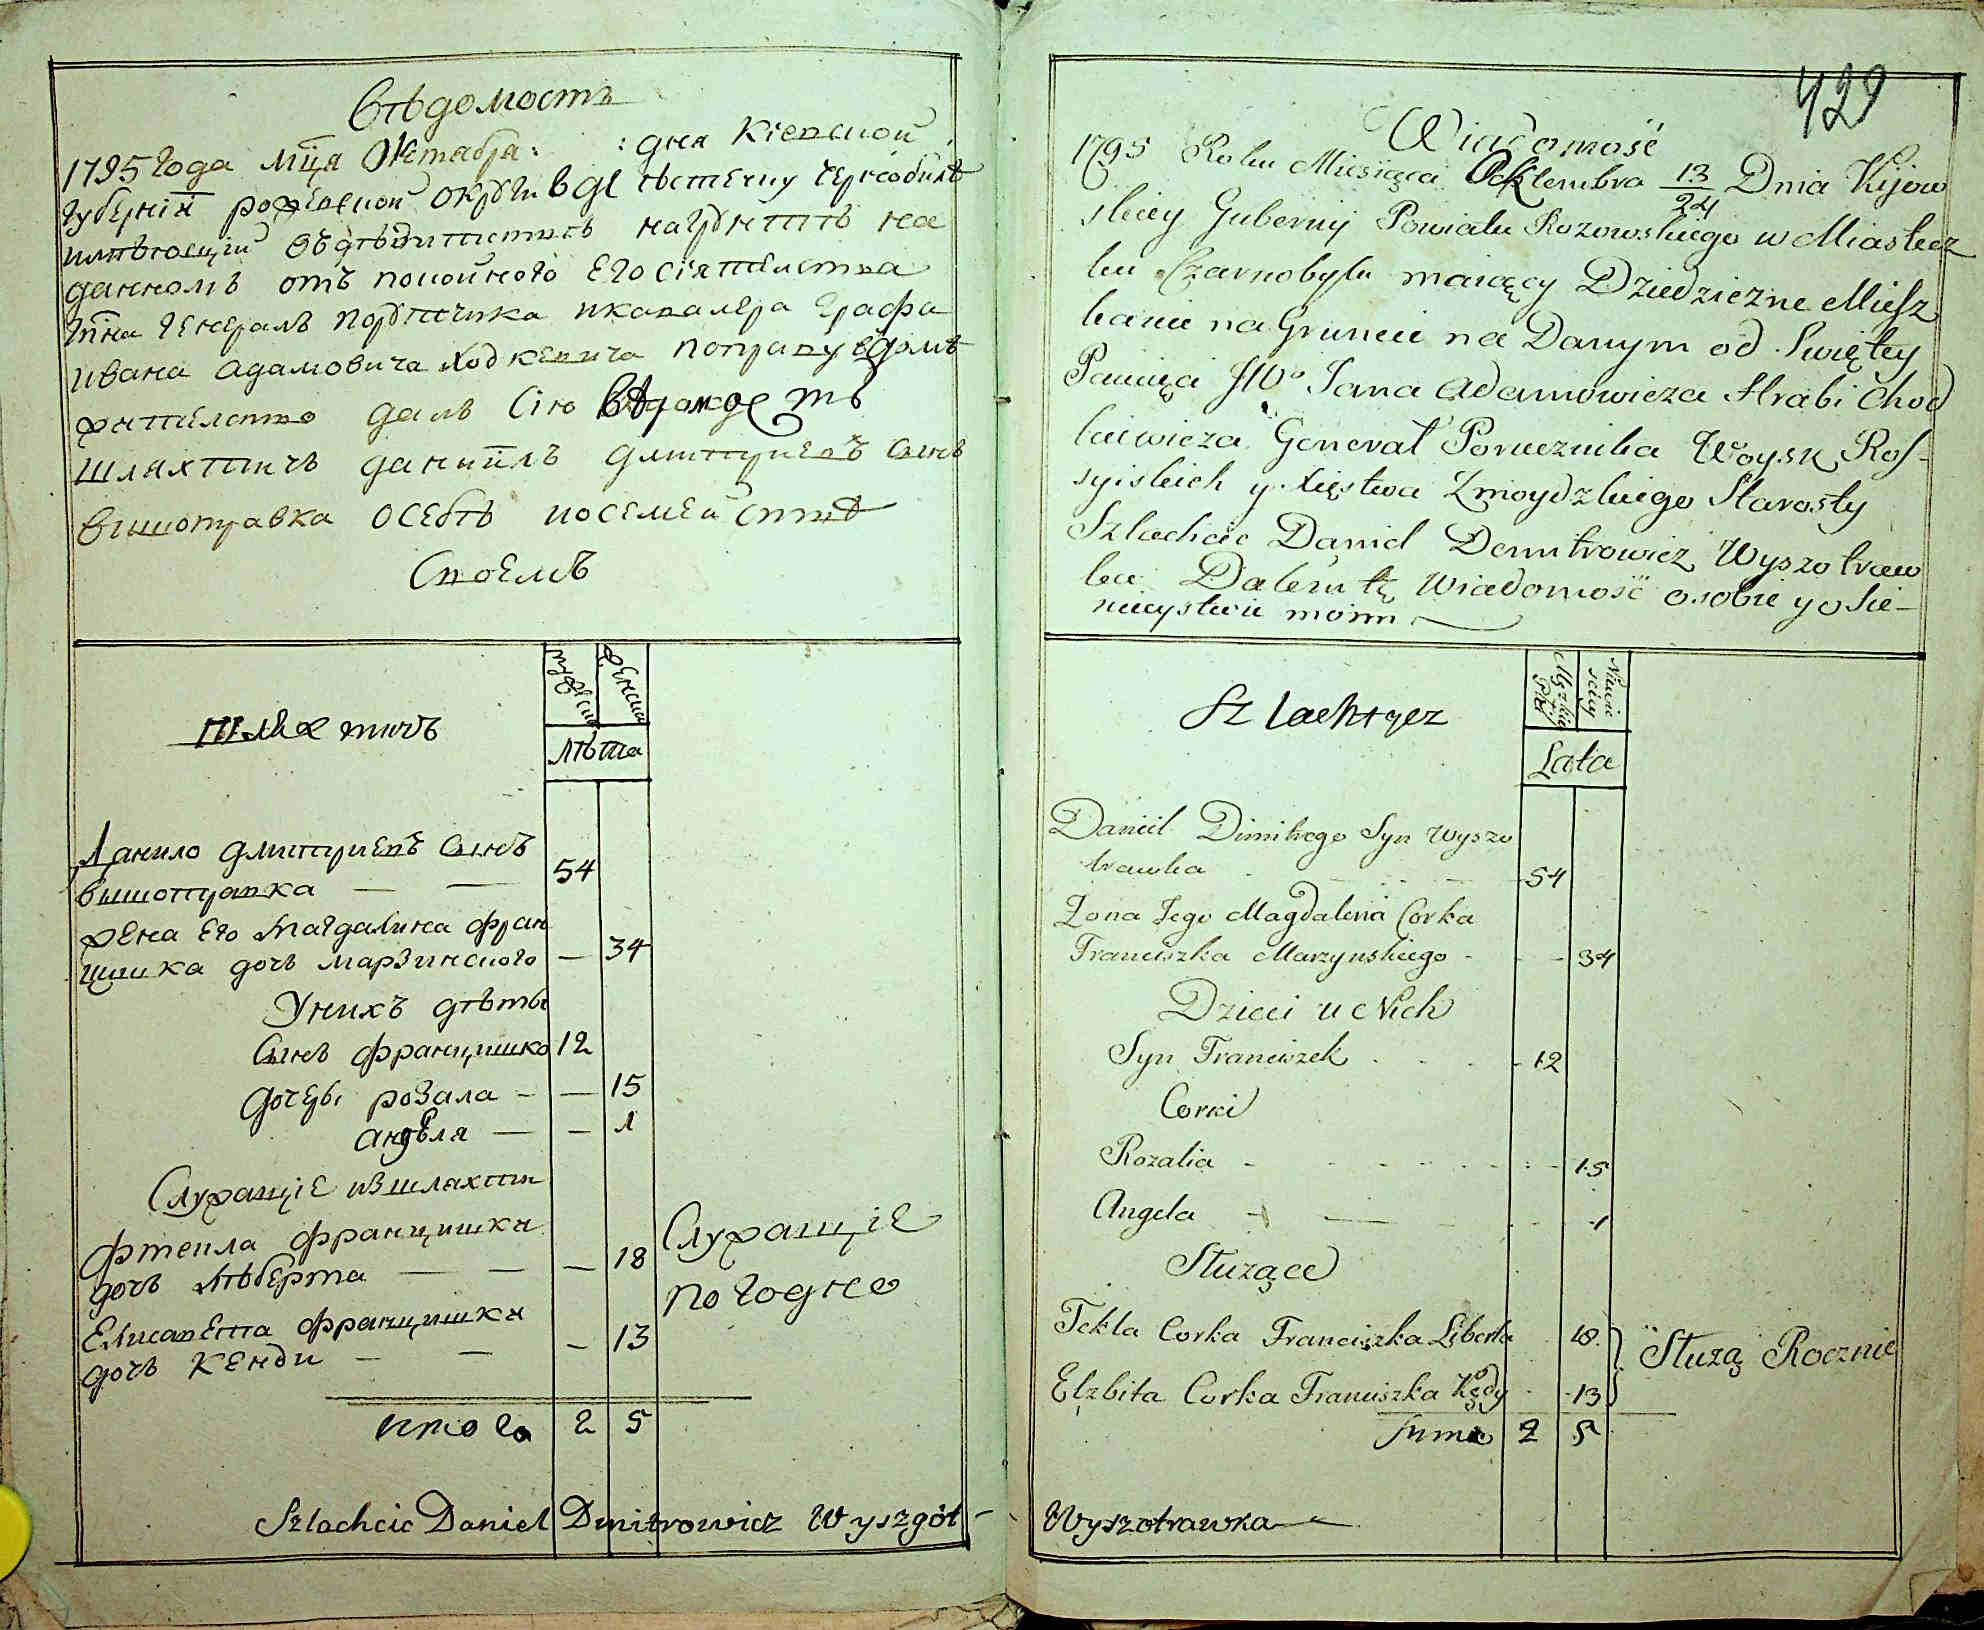 Вѣдомость
1795 года мца Октабра: : дня Кіевской
губернии рожевской округи в местечку чернобилѣ
имѣющій
данномъ отъ покойного его сіятелства
Гпна генералъ порутчика и кавалера Графа
ивана адамовича Ходкевича
далъ сію вѣдомость
шляхтичъ даниилъ дмитриевъ синъ
вишотравка о себѣ и о семействѣ
своемъ
шляхтичъ
мужеска
женска
лѣта
Данило дмитриевъ синъ
вишотравка — — 54
жена его магдалина фран
цишка дочь марзинского — 34
У нихъ дѣты
синъ францишко 12
дочеры розала — — 15
анѣеля — — 1
Служащіе из шляхти
Фтекла францишки
дочь лѣберта — — — 18
Елисавета францишки
дочь кенди — — — 13
Служащіе
погодно
итого 2 5
Szlachcic Daniel Dmitrowicz Wyszgot-
429
Wiadomość
1795 Roku Miesiąca Ocktembra 13/24 Dnia Kijow
skiey Gubernij Powiatu Rozowskiego w Miastecz
ku Czarnobylu maiący Dziedziczne Miesz
kanie na Gruncie na Danym od Swiętey
Pamięci JW° Jana Adamowicza Hrabi Chod
kiewicza Generał Porucznika Woysk Ros-
syiskich y Xięstwa Zmoydzkiego Starosty
Szlachcic Daniel Demitrowicz Wyszotraw
ka Dałem tę Wiadomość o sobie y o Sie-
mieystwie moim
Szlachtycz
Męzkiey
Płci
Niewie
sciey
Lata
Daniil Dimitrego Syn Wyszo
trawka - 54
Zona Jego Magdalena Corka
Franciszka Marzynskiego - - - 34
Dzieci u Nich
Syn Franciszek . . . - 12
Corki
Rozalia - - - - - - - 15
Angela - — - - - 1
Służące
Tekla Corka Franciszka Liberta 18.
Elzbita Corka Franciszka Kędy - 13
Służą Rocznie
Suma 2 5
Wyszotrawka